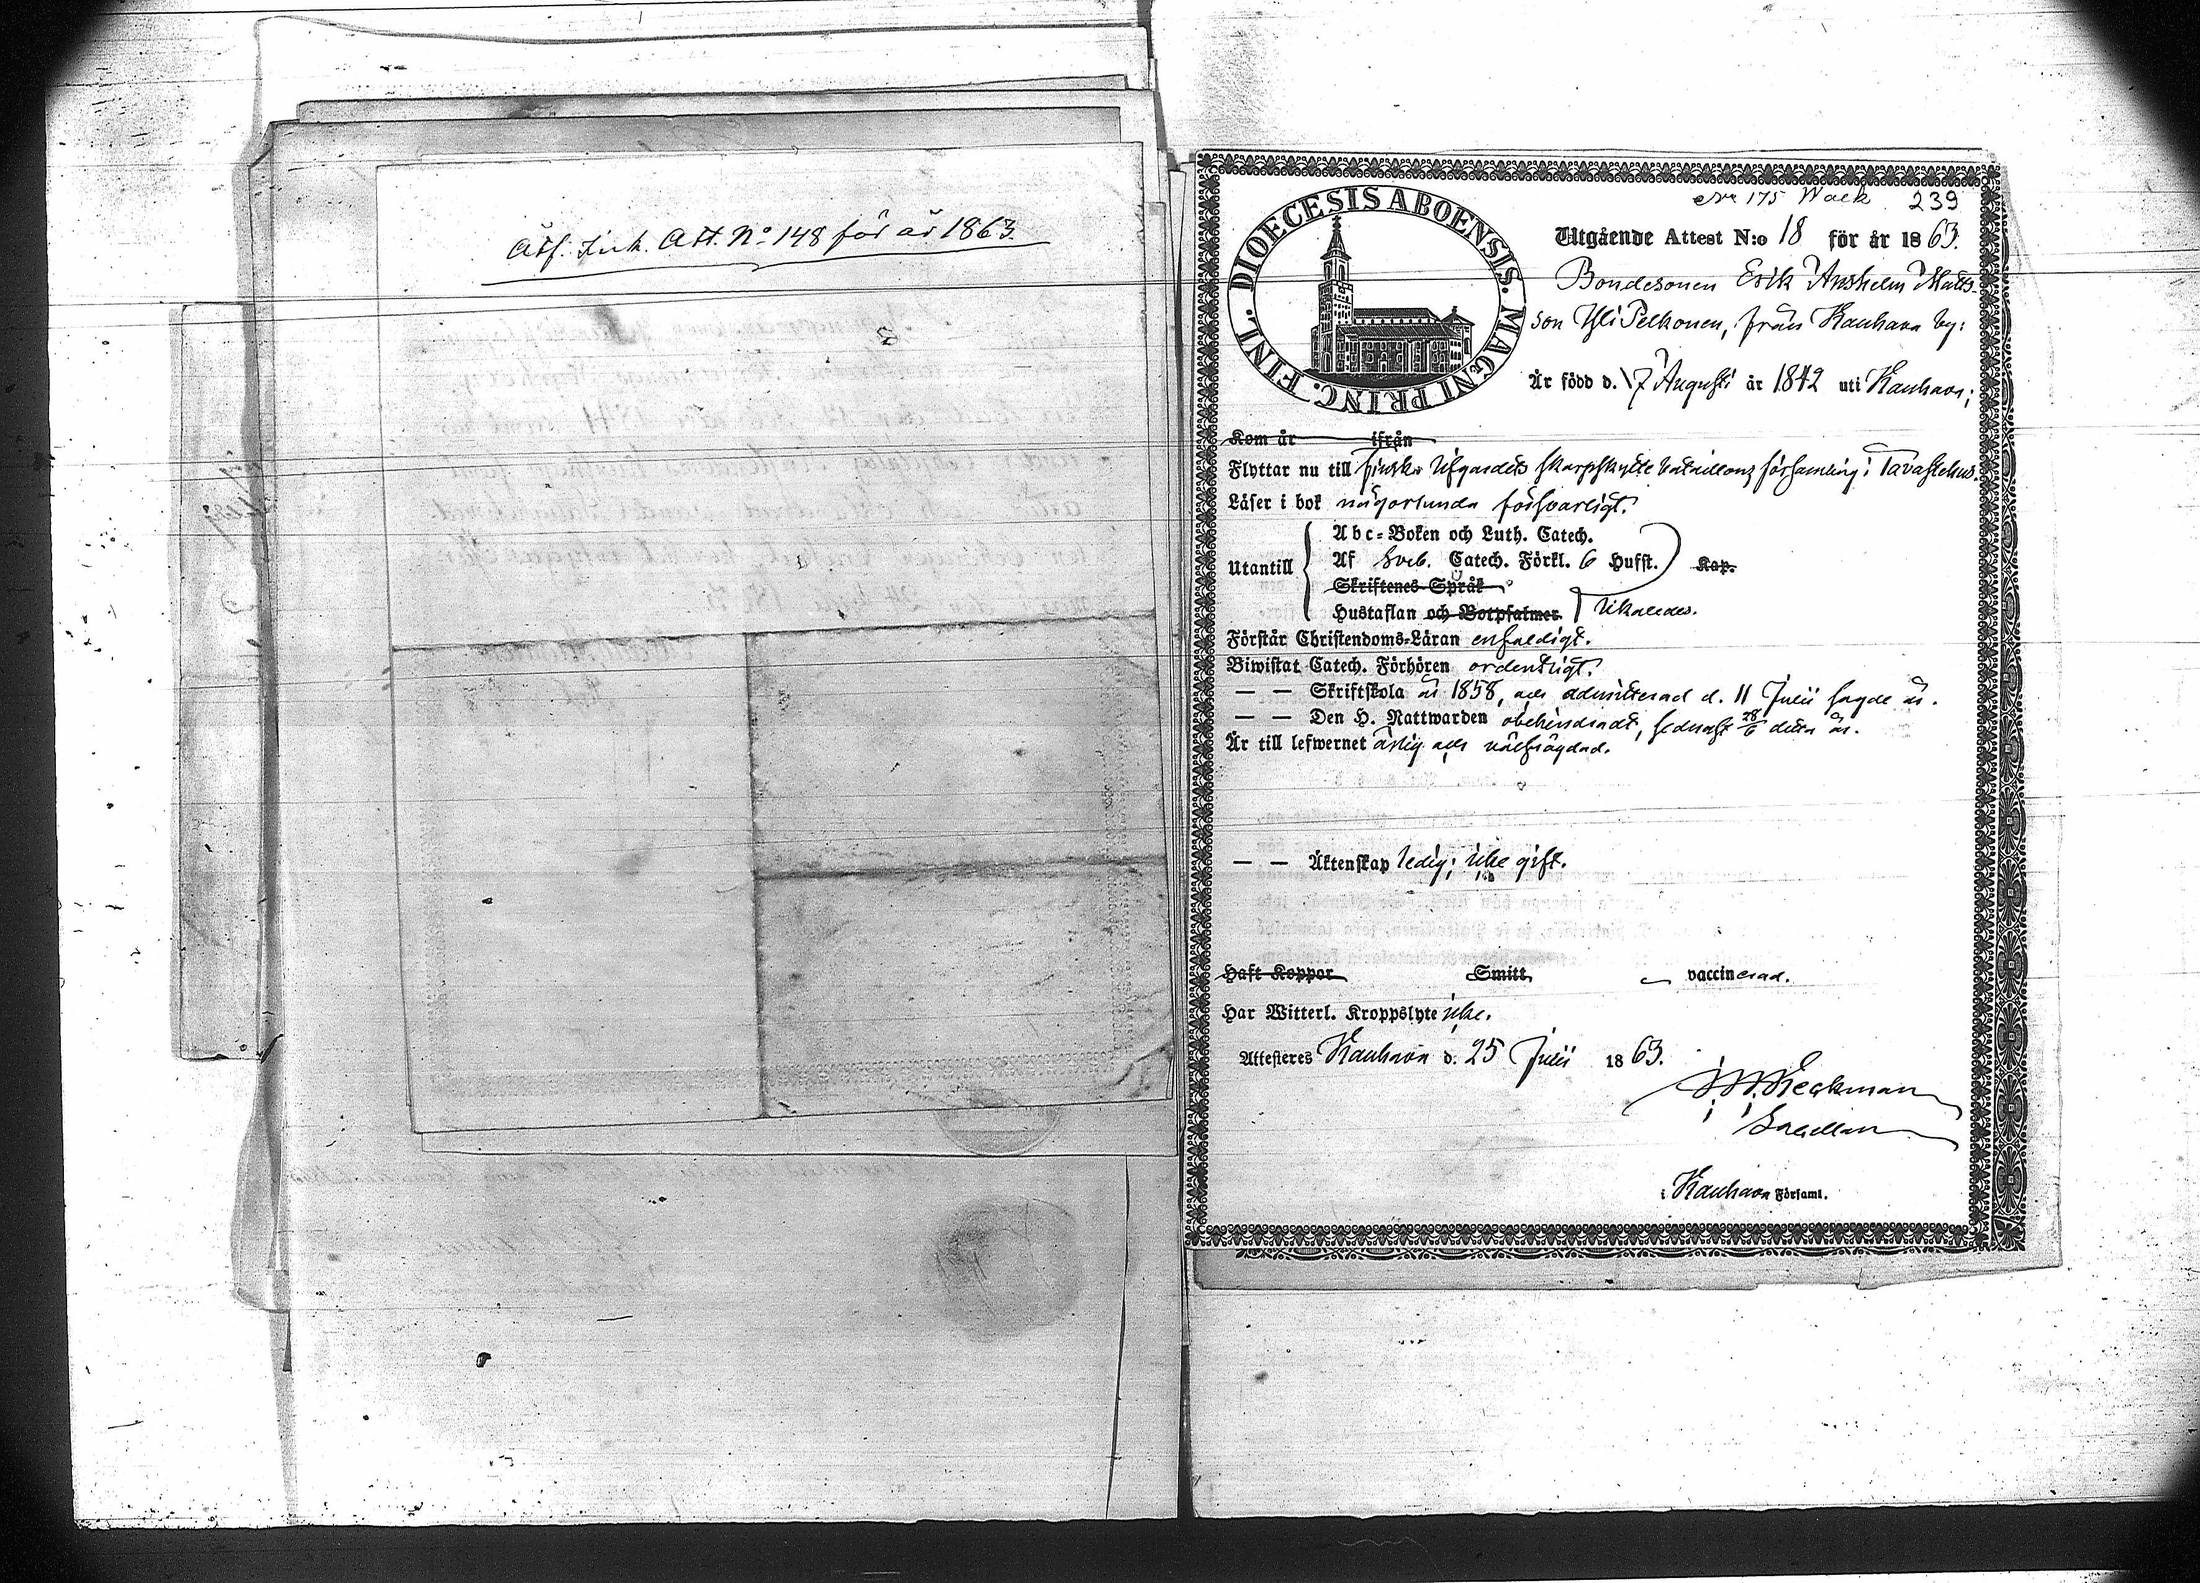 Att. Ink. Att. No 148 för år 1863.
DIOECESIS ABOENSIS. MAGNI PRINC. FINL.
No 175 Wack 239
Utgående Attest N:o 18 för år 1863.
Bondesonen Erik Anshelm Matts-
son Yli Pelkonen, från Kauhava by:
Är född d. 17 Augusti år 1842 uti Kauhava;
Kom år ifrån
Flyttar nu till Finska Lifgardets skarpskytte bataillons församling i Tavastehus.
Läser i bok någorlunda försvarligt.
Abc-Boken och Luth. Catech.
Utantill Af Sveb. Catech. Förkl. 6 Hufst. Kap.
Skriftenes Språk
Hustaflan och Botpsalmer
Förstår Christendoms-Läran enfaldigt.
Biwistat Catech. Förhören ordentligt.
— — Skriftskola år 1858, och admitterad d. 11 Julii sagde år.
— — Den H. Nattwarden obehindradt, sednast 28/6 detta år.
Är till lefwernet ärlig och välfrägdad.
— — Äktenskap ledig; icke gift.
Haft Koppor Smitt vaccinerad.
Har Witterl. Kroppslyte icke.
Attesteres Kauhava d. 25 Julii 1863.
Heckman
i Kauhava Församl.